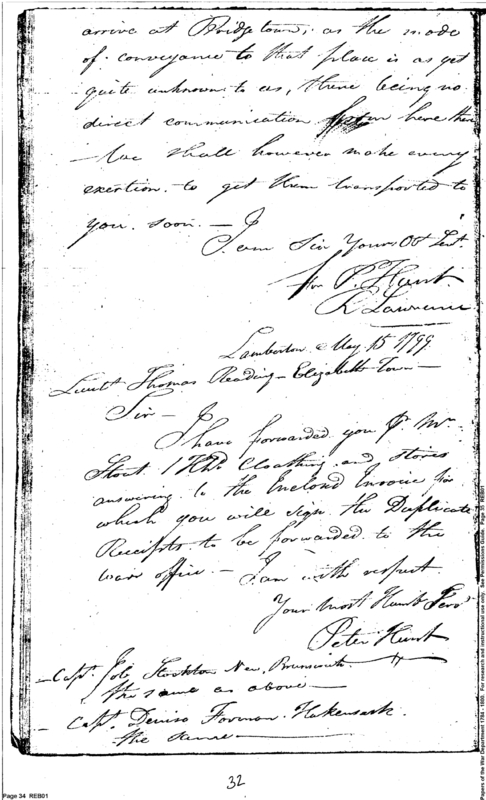 arrive at Bridgetown, as the mode
of conveyance to that place is as yet
quite unknown to us, there being no
direct communication from here there
— We shall however make every
exertion to get them transported to
you soon. —
I am Sir Yours Obt Servt
for P. Hunt
R Lawrence
Lamberton May 15 1799
Lieutt Thomas Reading — Elizabeth Town —
Sir —
I have forwarded you Pr Mr
Stout 1 Hhd Cloathing and stores
answering to the Enclosd Invoice for
which you will sign the Duplicate
Receipts to be forwarded to the
war office — I am with respect
Your Most Humb Servt
Peter Hunt
— Capt. Job Stockton New Brunswick —
the same as above —
— Capt. Denise Forman Hakensack.
the same —
32
Page 34 REB01
Papers of the War Department 1784 - 1800. For research and instructional use only. See Permissions Guide. Page 35 REB01